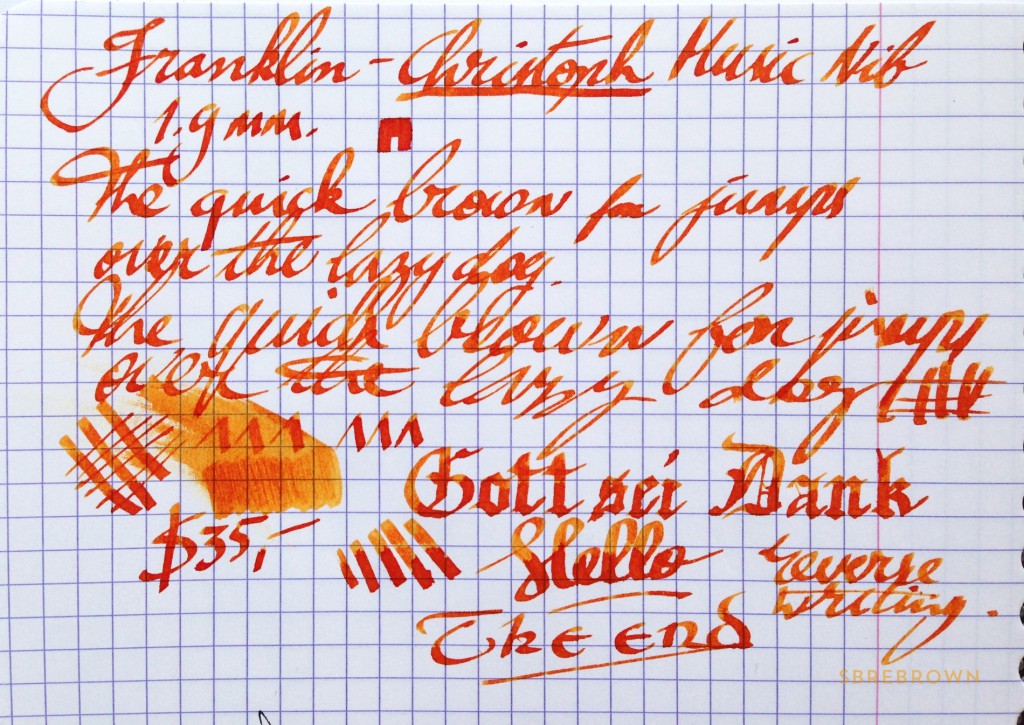 Franklin-Christoph Music Nib
1.9 mm.
The quick brown fox jumps
over the lazy dog.
The quick brown fox jumps
over the lazy dog
Gott sei Dank
$35,-
Hello
reverse
writing.
The End
SBREBROWN